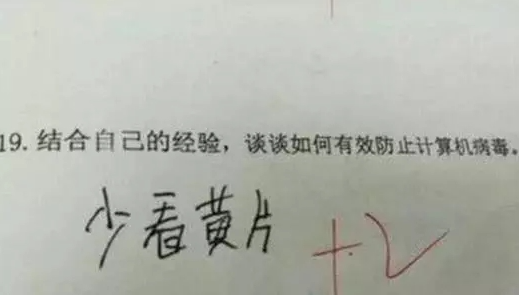 19. 结合自己的经验，谈谈如何有效防止计算机病毒。
少看黄片
+2